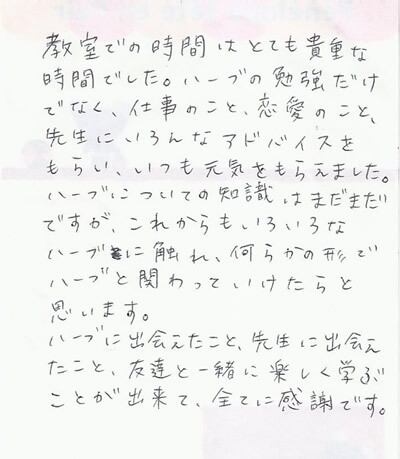 教室での時間はとても貴重な
時間でした。ハーブの勉強だけ
でなく、仕事のこと、恋愛のこと、
先生にいろんなアドバイスを
もらい、いつも元気をもらえました。
ハーブについての知識はまだまだ
ですが、これからもいろいろな
ハーブに触れ、何らかの形で
ハーブと関わっていけたらと
思います。
ハーブに出会えたこと、先生に出会え
たこと、友達と一緒に楽しく学ぶ
ことが出来て、全てに感謝です。